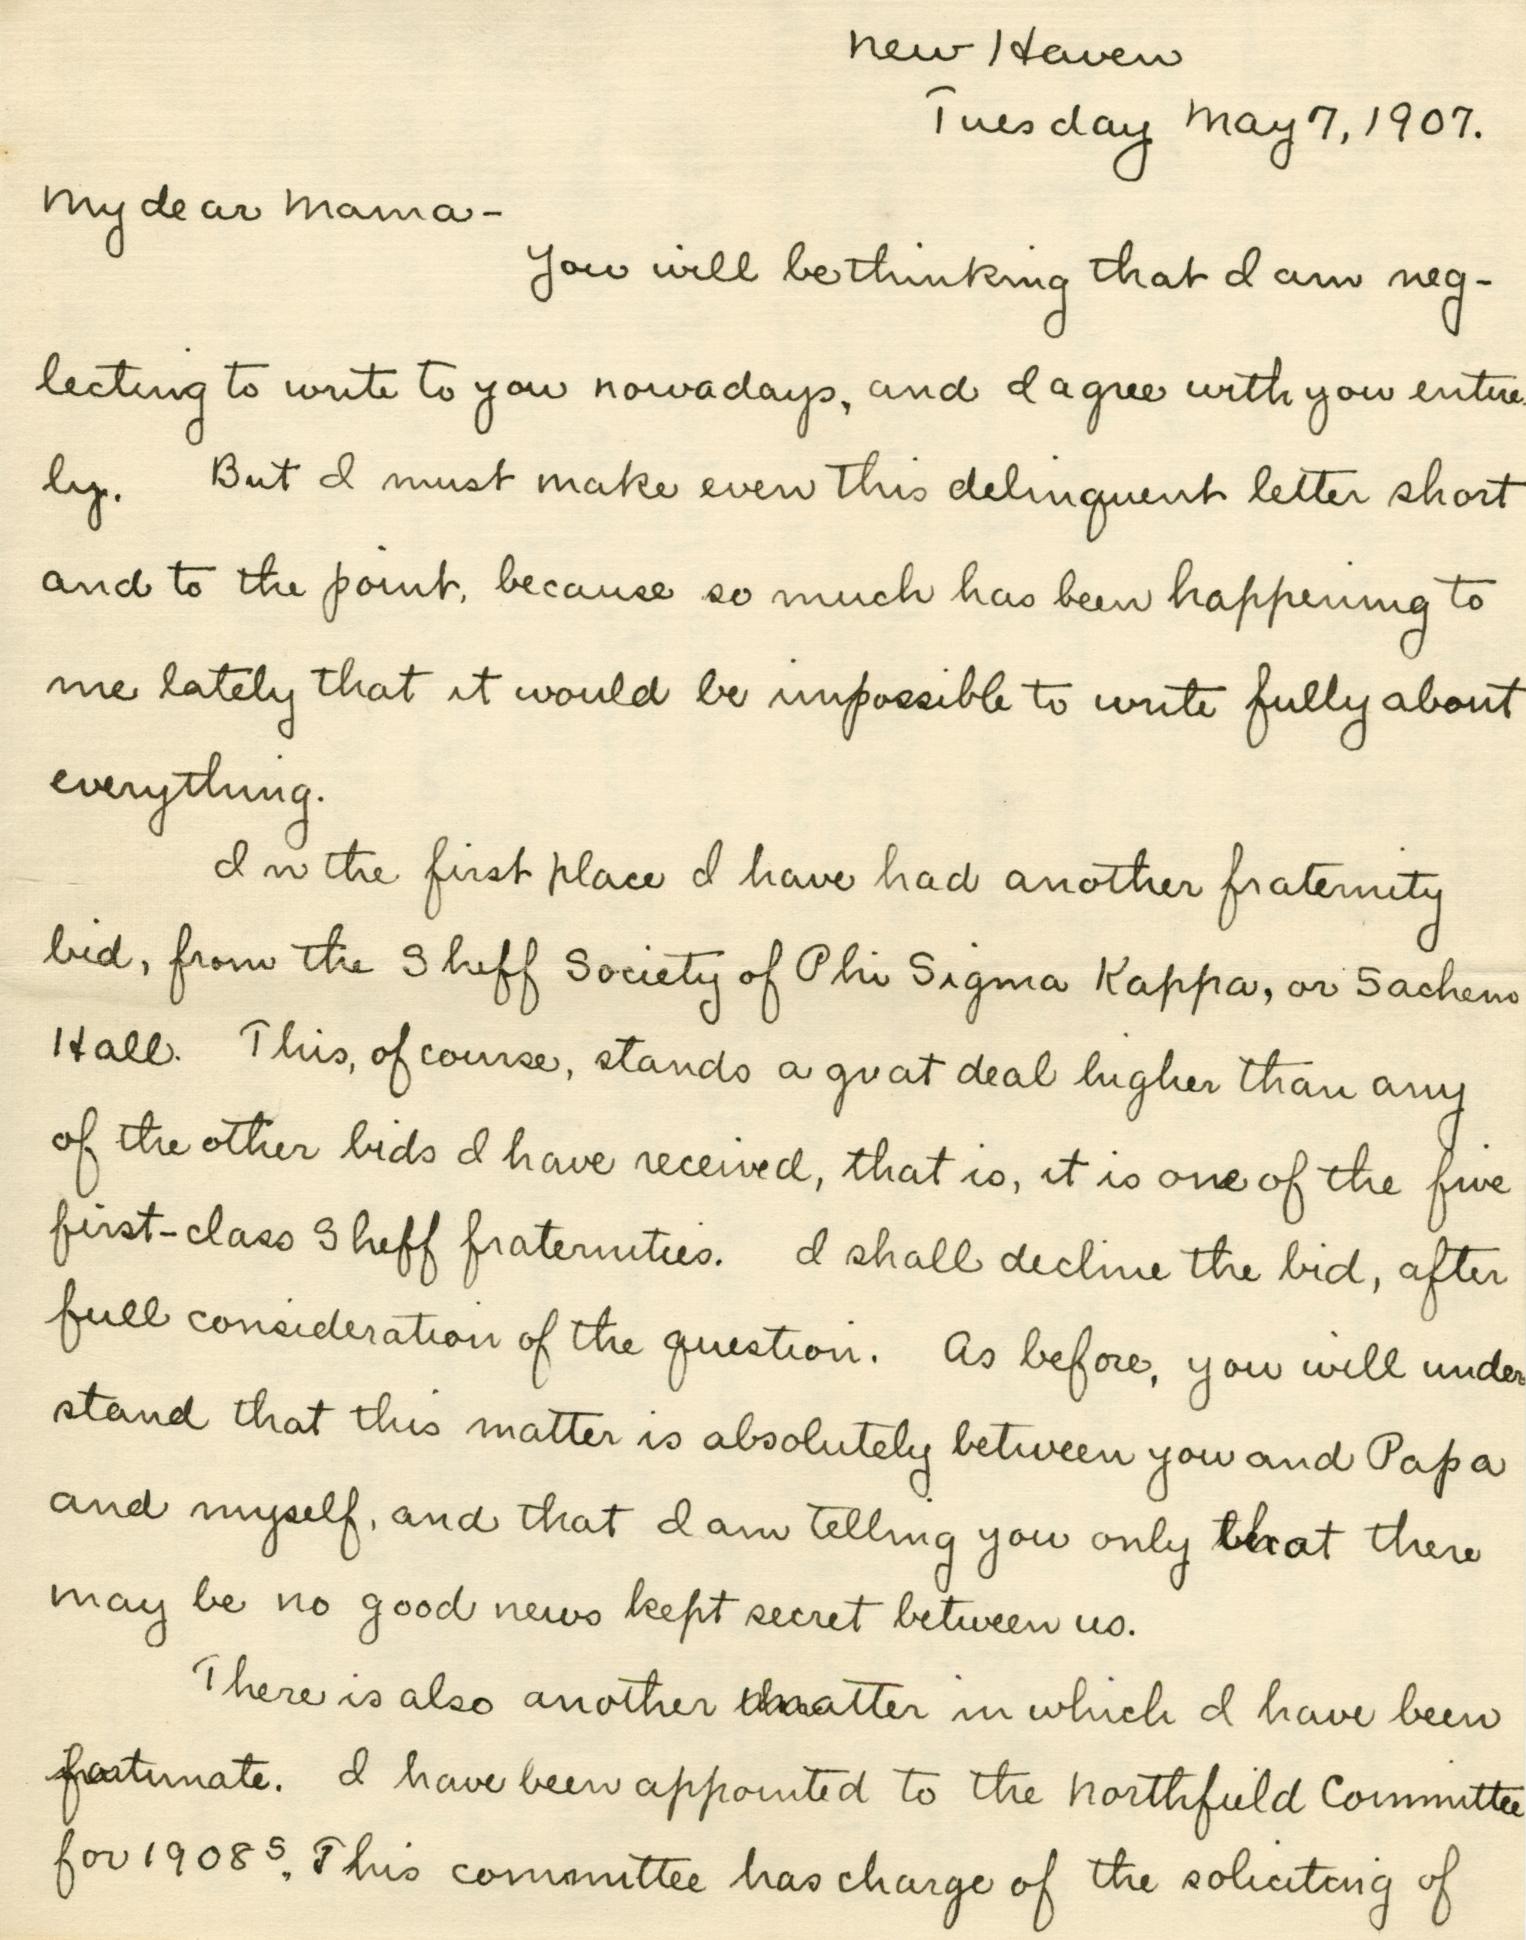 New Haven
Tuesday May 7, 1907.
My dear Mama-
You will be thinking that I am neg-
lecting to write to you nowadays, and I agree with you entire-
ly. But I must make even this delinquent letter short
and to the point, because so much has been happening to
me lately that it would be impossible to write fully about
everything.
In the first place I have had another fraternity
bid, from the Sheff Society of Phi Sigma Kappa, or Sachem
Hall. This, of course, stands a great deal higher than any
of the other bids I have received, that is, it is one of the five
first-class Sheff fraternities. I shall decline the bid, after
full consideration of the question. As before, you will under
stand that this matter is absolutely between you and Papa
and myself, and that I am telling you only that there
may be no good news kept secret between us.
There is also another matter in which I have been
fortunate. I have been appointed to the Northfield Committee
for 1908 S. This committee has charge of the soliciting of